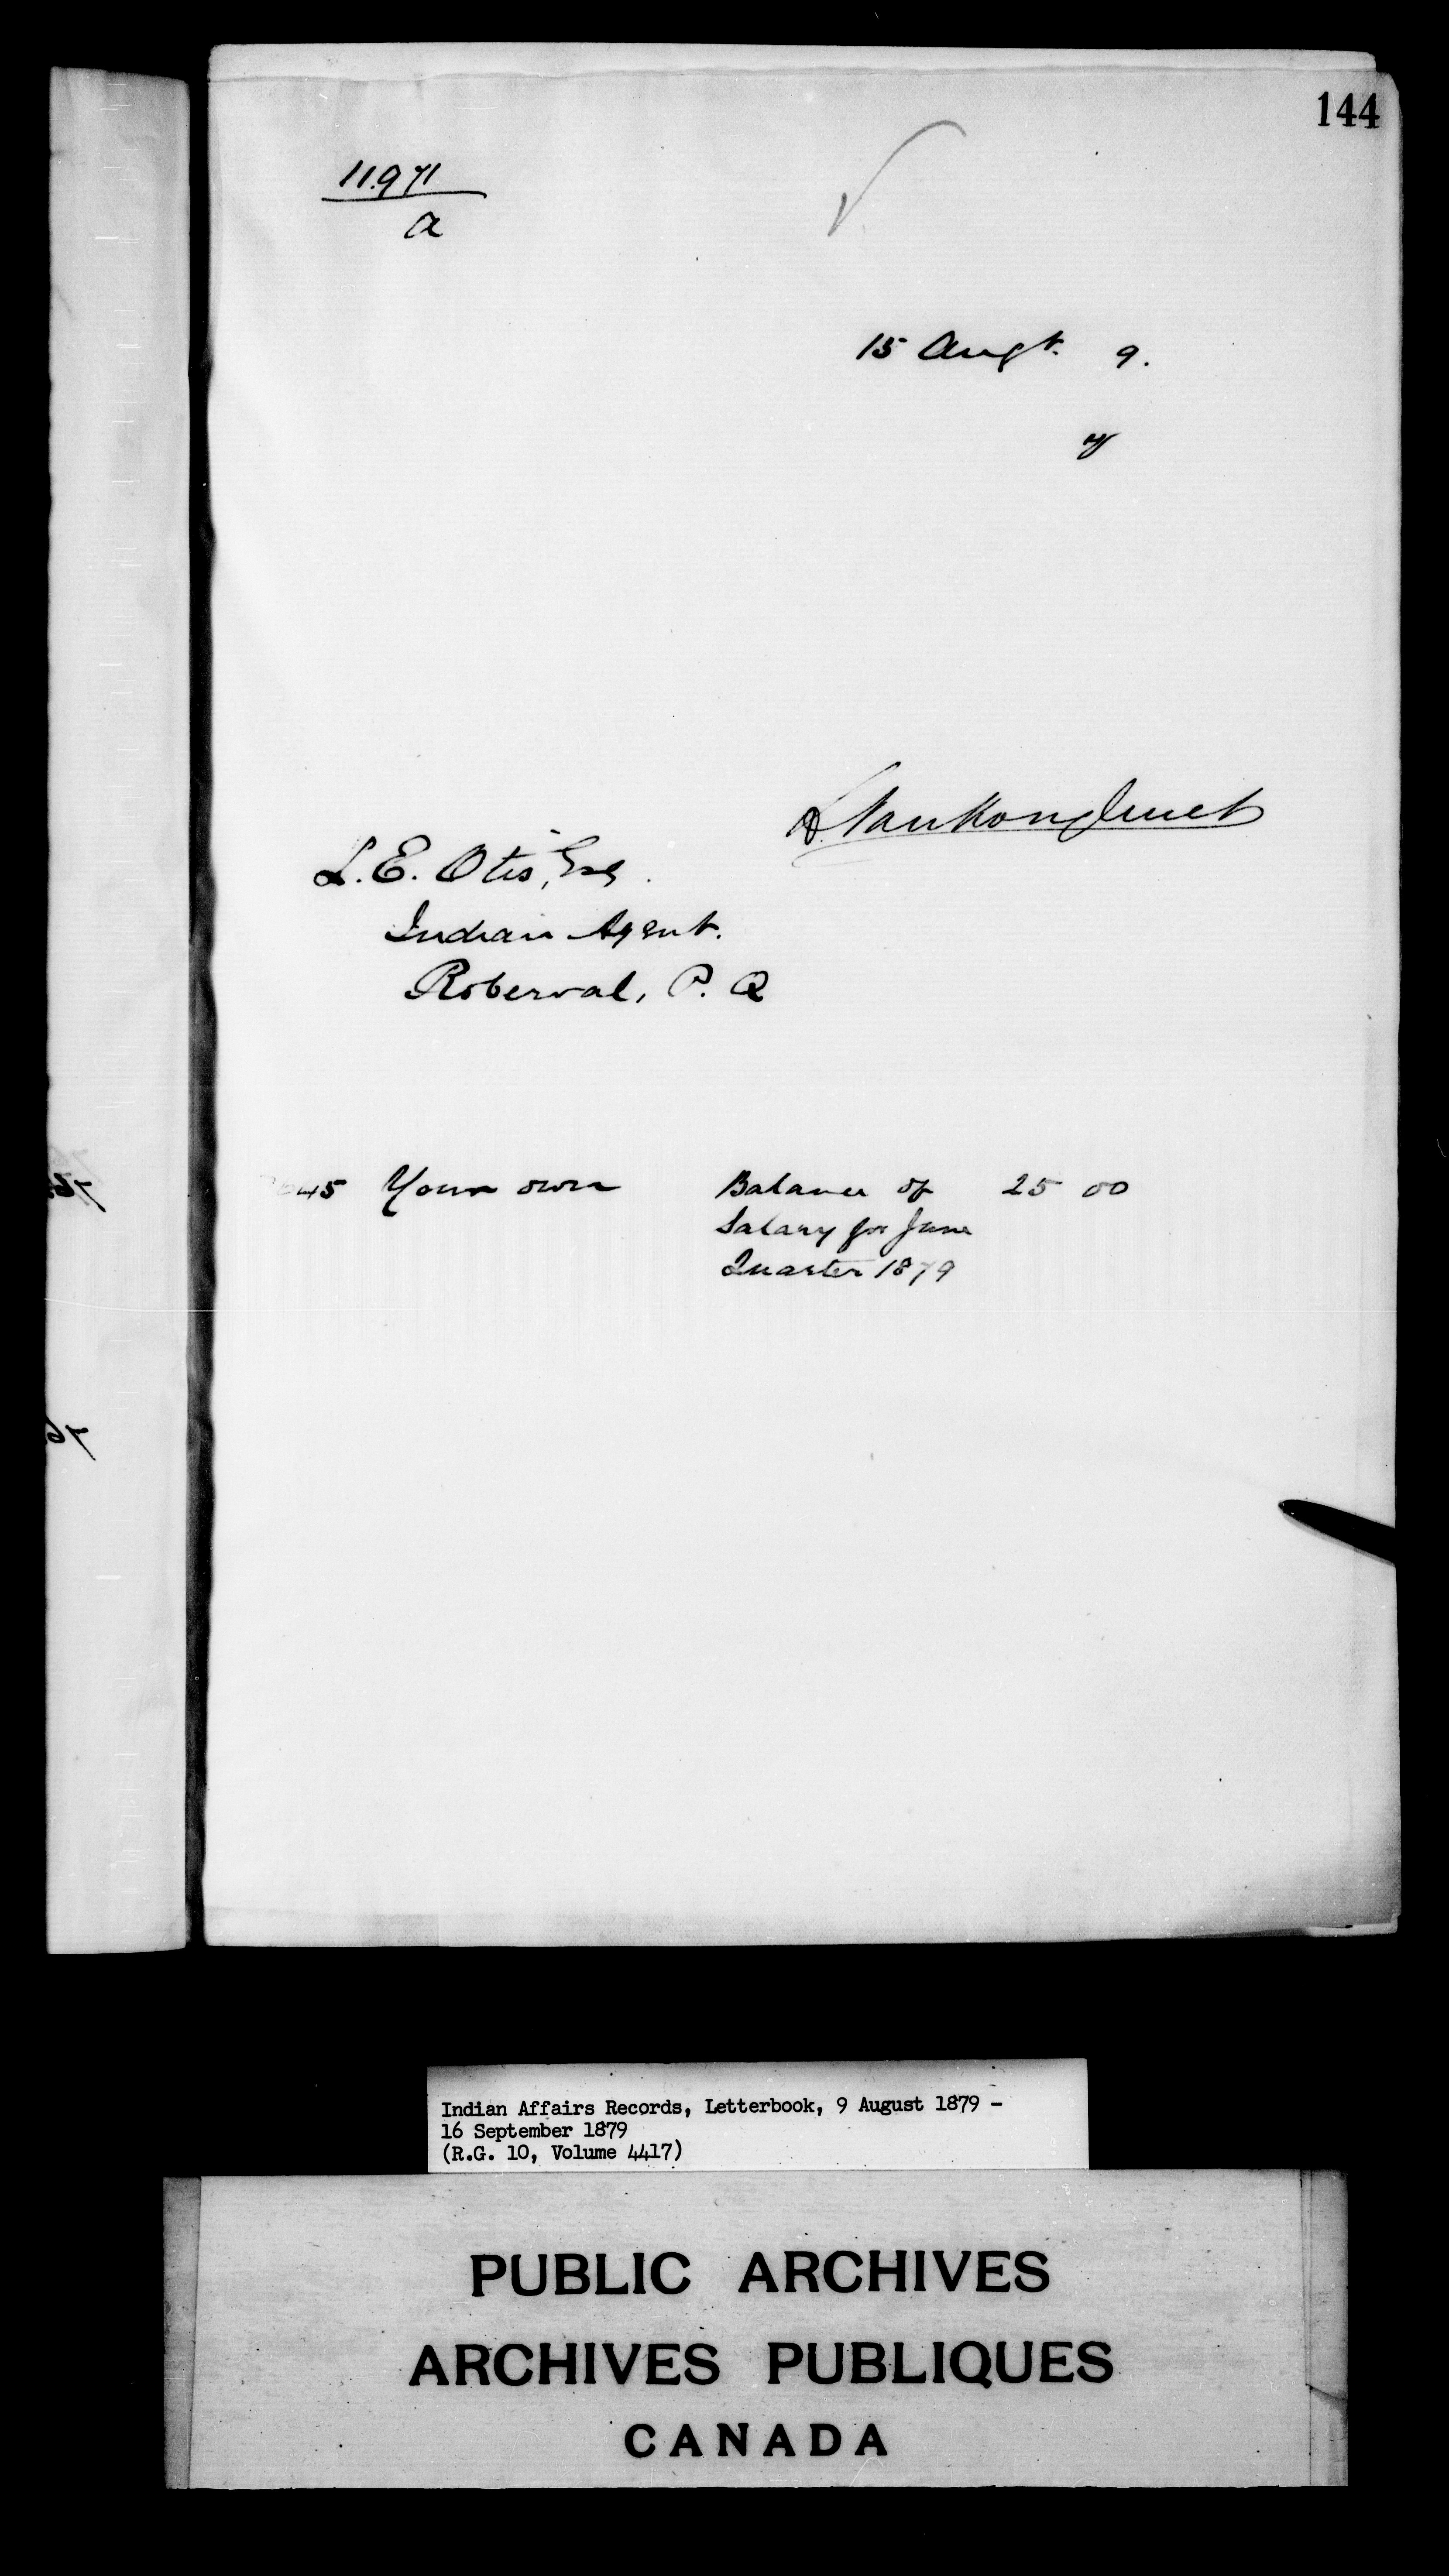 144
11.971
a
15 Augt. 9.
y
L. VanKoughnet
L. E. Otis, Esq.
Indian Agent.
Roberval, P. Q
645 Your own Balance of 25 00
Salary for June
Quarter 1879
Indian Affairs Records, Letterbook, 9 August 1879 -
16 September 1879
(R.G. 10, Volume 4417)
PUBLIC ARCHIVES
ARCHIVES PUBLIQUES
CANADA